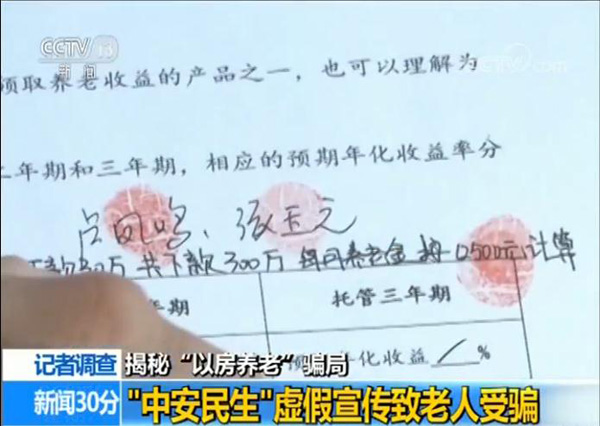 CCTV 13
新闻
CCTV.com
领取养老收益的产品之一，也可以理解为
二年期和三年期，相应的预期年化收益率分
张玉元
共下款300万 每月养老金 按 10500元计算
年期
托管三年期
年化收益 / %
记者调查
揭秘“以房养老”骗局
新闻30分
"中安民生"虚假宣传致老人受骗